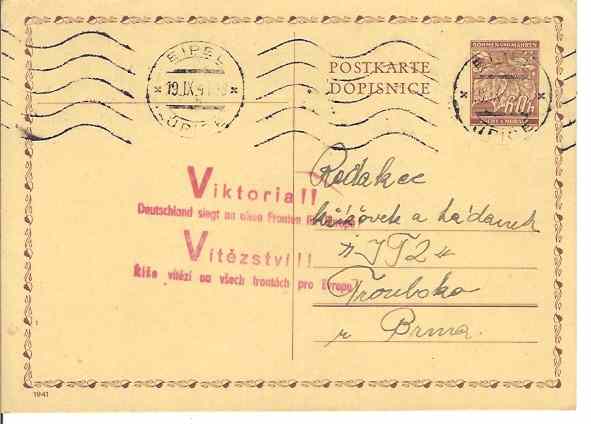 EIPEL
19.IX.41
ÚPICE
POSTKARTE
DOPISNICE
BÖHMEN UND MÄHREN
EIPEL
60h
ÚPICE
Viktoria!!
Deutschland siegt an allen Fronten für Europa!
Vítězství!!
Říše vítězí na všech frontách pro Evropu!
Redakce
křížovek a hádanek
Troubsko
u Brna.
1941